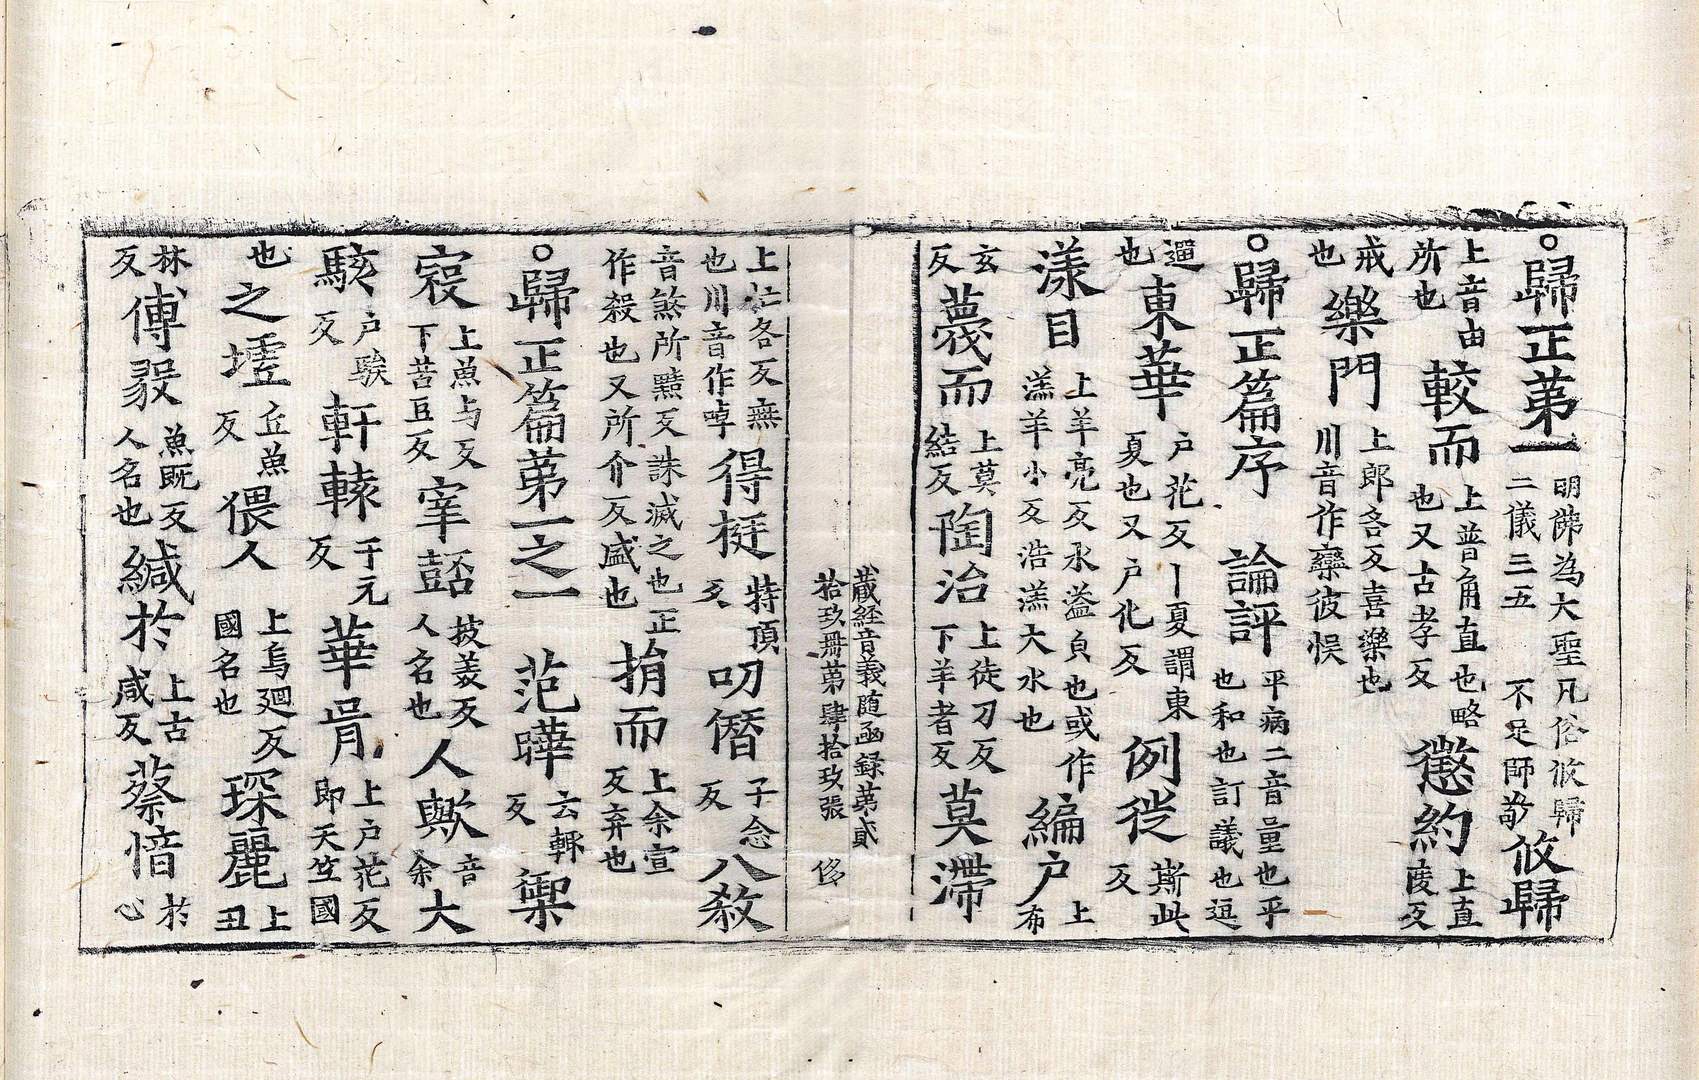 ○歸正苐一明佛為大聖凡俗攸歸二儀三五不足師敬攸歸
上音由所也較而上普角直也略也又古孝反懲約上直陵反
戒也樂門上郎各反喜樂也川音作欒彼悮
○歸正篇序論評平病二音量也乎也和也訂議也逗
逼也東華户花反丨夏謂東夏也又户化反例徙斯此反
漾目上羊亮反水溢皃也或作漾羊小反浩漾大水也編户上布
玄反薎而上莫結反陶冶上徒刀反下羊者反莫滯
藏經音義随函録苐貳拾玖册苐肆拾玖張 侈
上各反無也川音作㖼得挺特頂反叨僭子念反八敎
音煞所黠反誅滅之也正作殺也又所介反盛也捐而上余宣反弃也
○歸正篇苐一之一范曄云輙反禦
寇上魚与反下苦豆反宰嚭披美反人名也人歟音余大
駭户騃反軒轅于元反華胥上户花反即天竺國
也之墟丘魚反偎人上烏迴反國名也琛麗上丑
林反傅毅魚既反人名也緘於上古咸反蔡愔於心